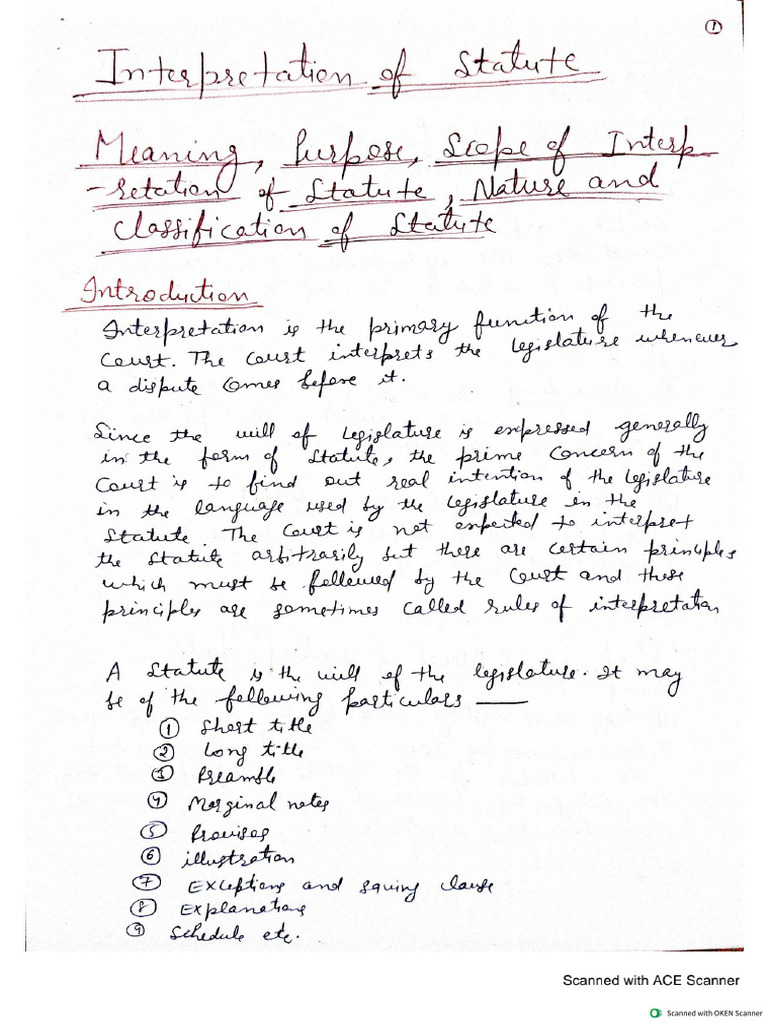 1
Interpretation of Statute
Meaning, Purpose, Scope of Interp
-retation of Statute, Nature and
Classification of Statute
Introduction
Interpretation is the primary function of the
Court. The Court interprets the legislature whenever
a dispute comes before it.
Since the will of legislature is expressed generally
in the form of Statute, the prime concern of the
Court is to find out real intention of the legislature
in the language used by the legislature in the
Statute. The Court is not expected to interpret
the Statute arbitrarily but there are certain principles
which must be followed by the Court and these
principles are sometimes called rules of interpretation
A Statute is the will of the legislature. It may
be of the following particulars —
1 Short title
2 Long title
3 Preamble
4 Marginal notes
5 Provisos
6 illustration
7 Exceptions and saving clause
8 Explanations
9 Schedule etc.
Scanned with ACE Scanner
Scanned with OKEN Scanner